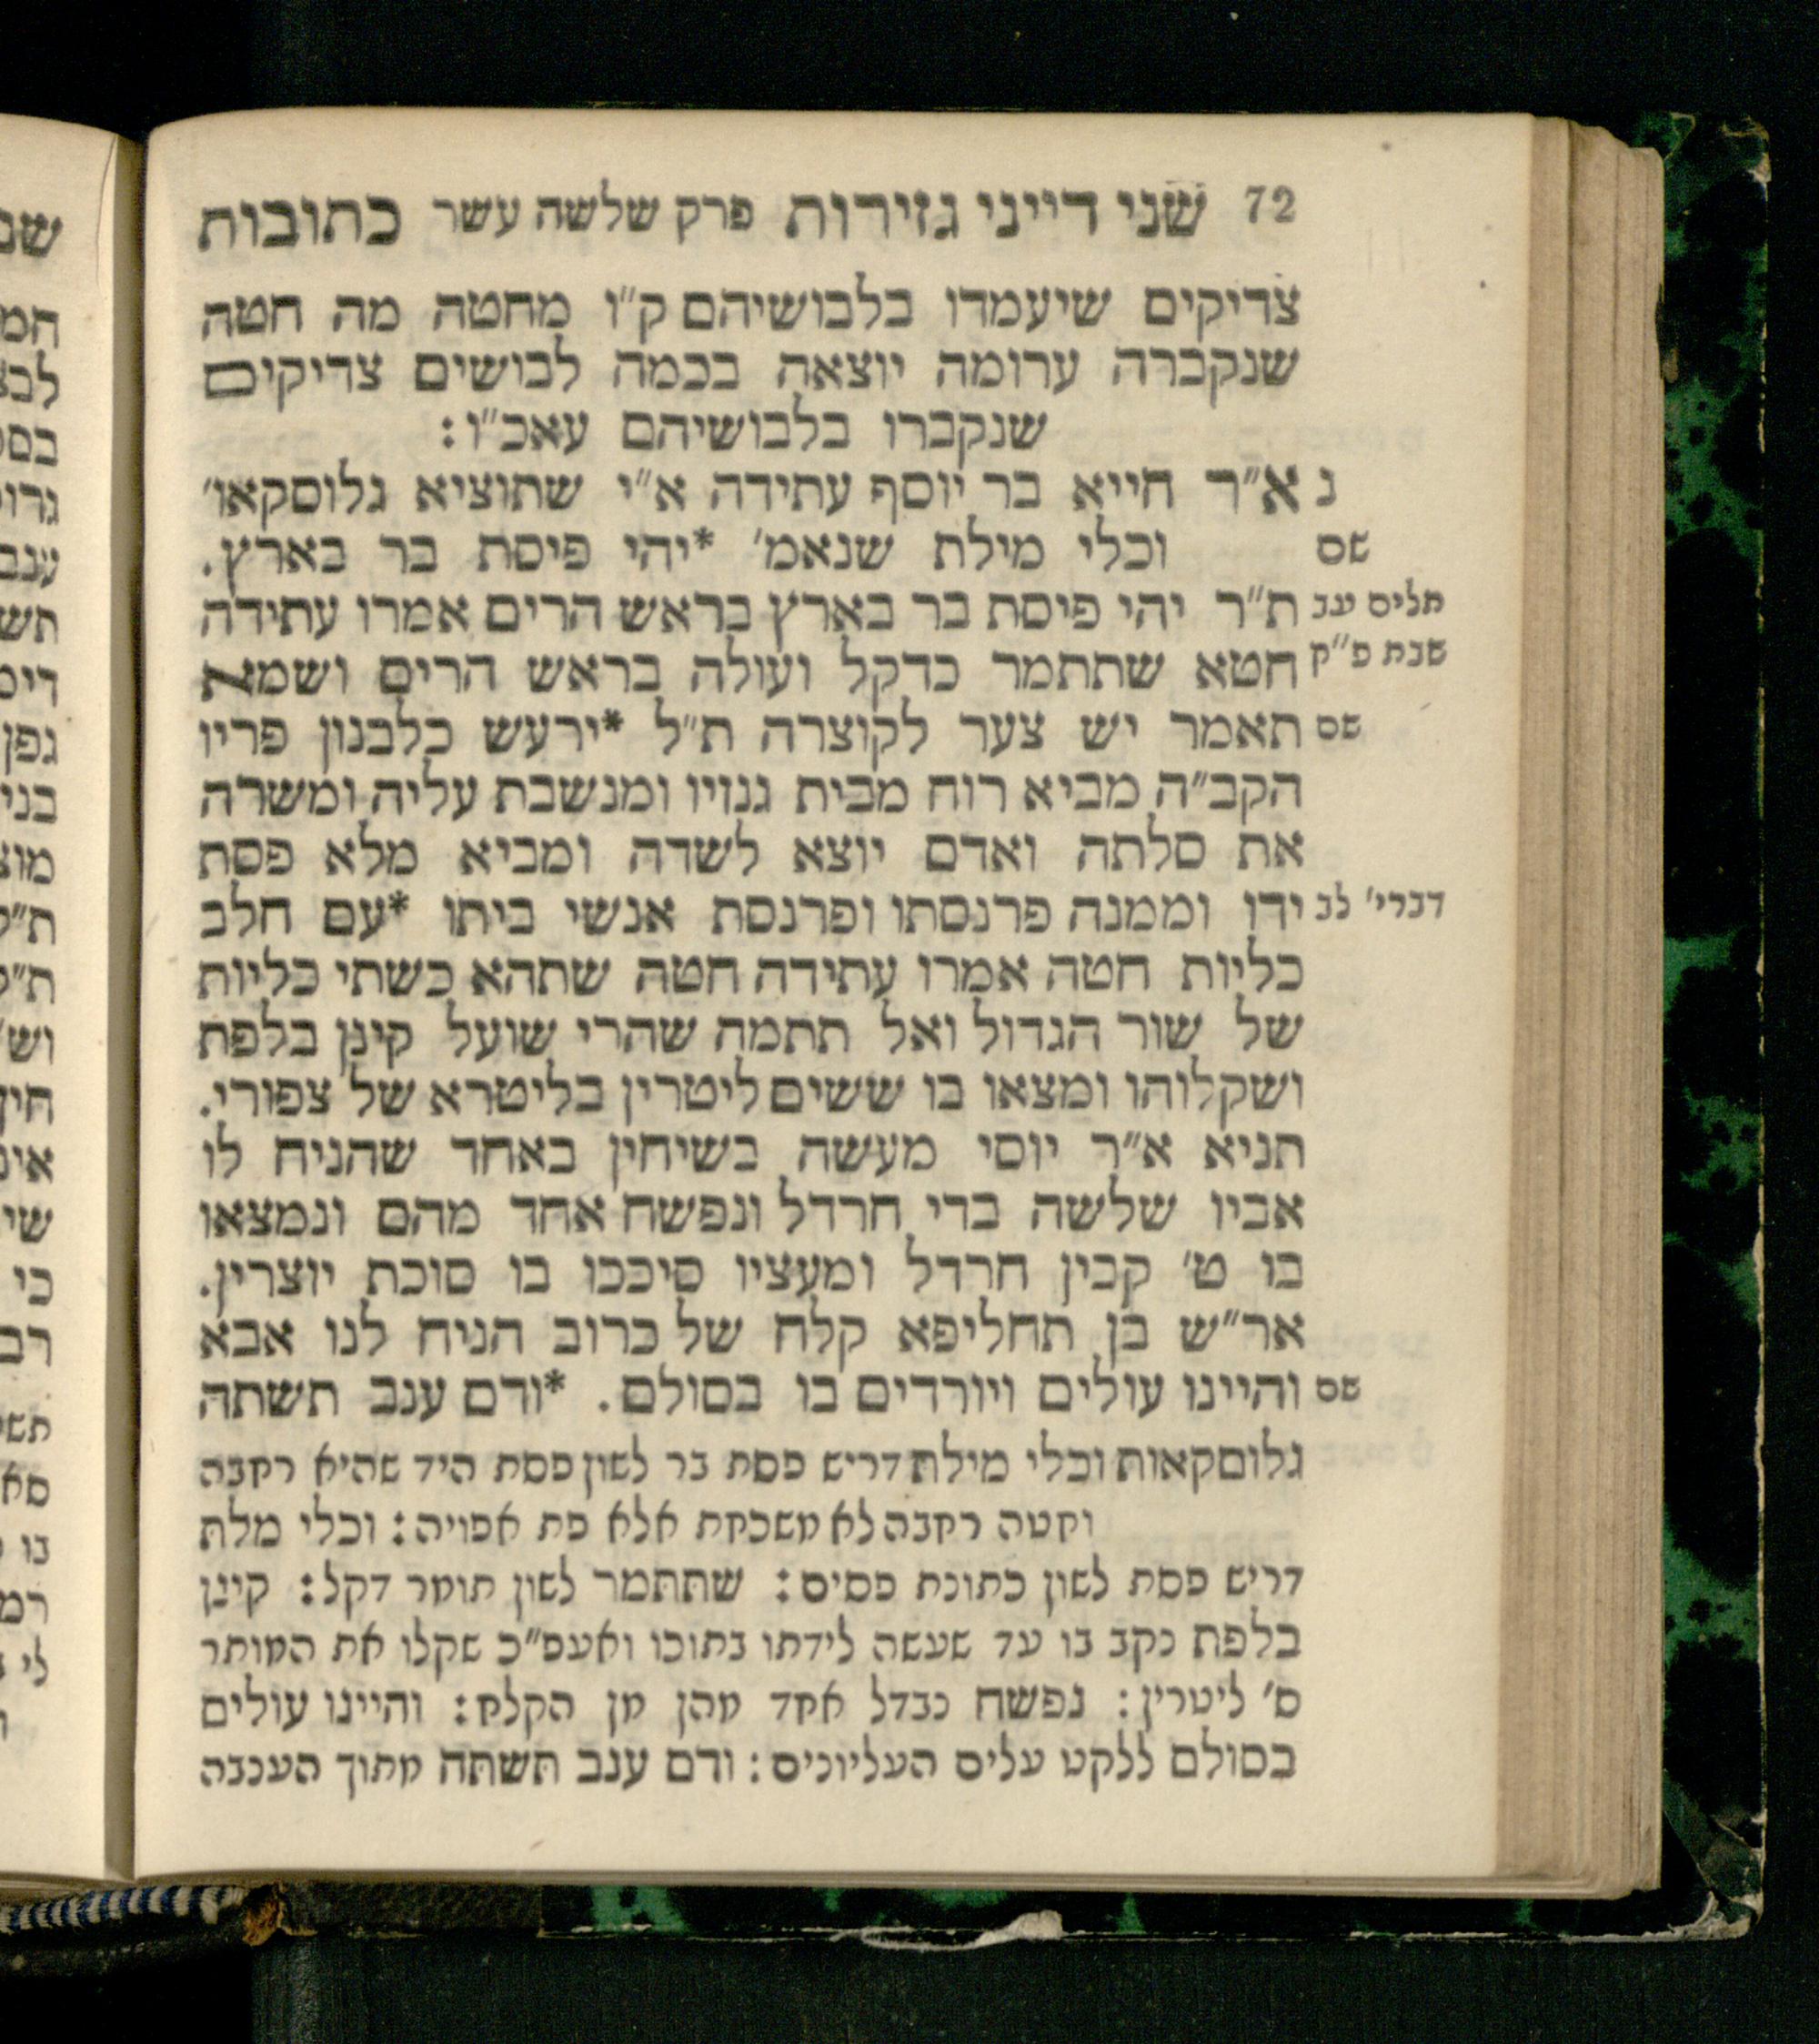 72 שני דייני גזירות פרק שלשה עשר כתובות
צדיקים שיעמדו בלבושיהם ק״ו מחטה מה חטה
שנקברה ערומה יוצאה בכמה לבושים צדיקים
שנקברו בלבושיהם עאכ״ו:
נ א״ר חייא בר יוסף עתידה א״י שתוציא גלוסקאו׳
שם וכלי מילת שנאמ׳ *יהי פיסת בר בארץ.
תלים עב ת״ר יהי פיסת בר בארץ בראש הרים אמרו עתידה
שבת פ״ק חטא שתתמר כדקל ועולה בראש הרים ושמא
שם תאמר יש צער לקוצרה ת״ל *ירעש כלבנון פריו
הקב״ה מביא רוח מבית גנזיו ומנשבת עליה ומשרה
את סלתה ואדם יוצא לשדה ומביא מלא פסת
דברי׳ לב ידו וממנה פרנסתו ופרנסת אנשי ביתו *עם חלב
כליות חטה אמרו עתידה חטה שתהא כשתי כליות
של שור הגדול ואל תתמה שהרי שועל קינן בלפת
ושקלוהו ומצאו בו ששים ליטרין בליטרא של צפורי.
תניא א״ר יוסי מעשה בשיחין באחד שהניח לו
אביו שלשה בדי חרדל ונפשח אחד מהם ונמצאו
בו ט׳ קבין חרדל ומעציו סיככו בו סוכת יוצרין.
אר״ש בן תחליפא קלח של כרוב הניח לנו אבא
שם והיינו עולים ויורדים בו בסולם. *ודם ענב תשתה
גלוסקאות וכלי מילת דריש פסת בר לשון פסת היד שהיא רחבה
וחטה רחבה לא משכחת אלא פת אפויה: וכלי מלת
דריש פסת לשון כתונת פסים: שתתמר לשון תומר דקל: קינן
בלפת נקב בו עד שעשה לידתו בתוכו ואעפ״כ שקלו את המותר
ס׳ ליטרין: נפשח נבדל אחד מהן מן הקלח: והיינו עולים
בסולם ללקט עלים העליונים: ודם ענב תשתה מתוך הענבה